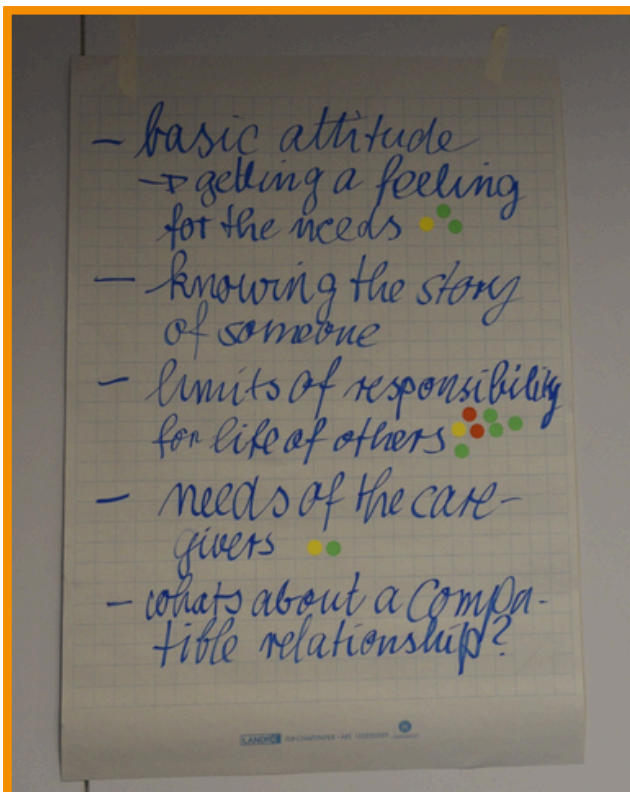 - basic attitude
→ getting a feeling
for the needs
- knowing the story
of someone
- limits of responsibility
for life of others
- needs of the care-
givers
- whats about a compa-
tible relationship?
LANDRÉ